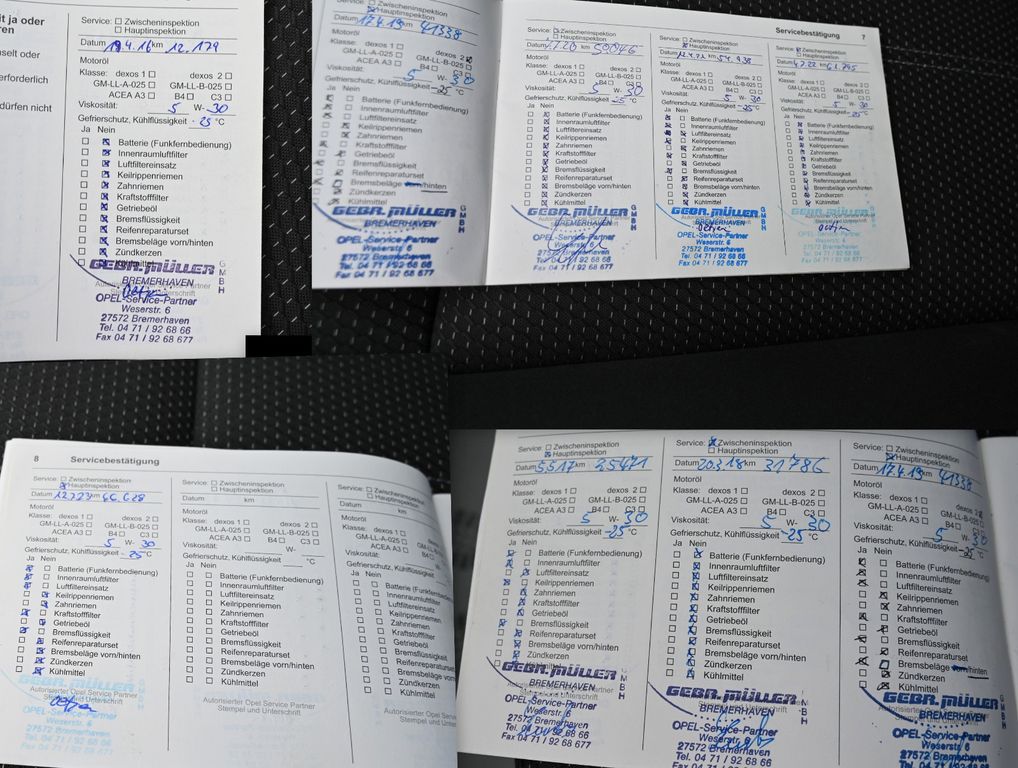 t ja oder
fen
nselt oder
erforderlich
dürfen nicht
Service: Zwischeninspektion
Hauptinspektion
Datum 19.4.16 km 12.179
Motoröl
Klasse: dexos 1 dexos 2
GM-LL-A-025 GM-LL-B-025
ACEA A3 B4 C3
Viskosität: 5 W- 30
Gefrierschutz, Kühlflüssigkeit -25 °C
Ja Nein
Batterie (Funkfernbedienung)
Innenraumluftfilter
Luftfiltereinsatz
Keilrippenriemen
Zahnriemen
Kraftstofffilter
Getriebeöl
Bremsflüssigkeit
Reifenreparaturset
Bremsbeläge vorn/hinten
Zündkerzen
GEBR. MÜLLER GMBH
BREMERHAVEN
OPEL-Service-Partner
Weserstr. 6
27572 Bremerhaven
Tel. 04 71 / 92 68 66
Fax 04 71 / 92 68 677
Hauptinspektion
Datum 17.4.19 km 41338
Motoröl
Klasse: dexos 1 dexos 2
GM-LL-A-025 GM-LL-B-025
ACEA A3 B4 C3
Viskosität: 5 W- 30
Gefrierschutz, Kühlflüssigkeit -25 °C
Ja Nein
Batterie (Funkfernbedienung)
Innenraumluftfilter
Luftfiltereinsatz
Keilrippenriemen
Zahnriemen
Kraftstofffilter
Getriebeöl
Bremsflüssigkeit
Reifenreparaturset
Bremsbeläge vorn/hinten
Zündkerzen
Kühlmittel
GEBR. MÜLLER GMBH
BREMERHAVEN
OPEL-Service-Partner
Weserstr. 6
27572 Bremerhaven
Tel. 04 71 / 92 68 66
Fax 04 71 / 92 68 677
Servicebestätigung 7
Service: Zwischeninspektion
Hauptinspektion
Datum km 50046
Motoröl
Klasse: dexos 1 dexos 2
GM-LL-A-025 GM-LL-B-025
ACEA A3 B4 C3
Viskosität: 5 W- 30
Gefrierschutz, Kühlflüssigkeit -25 °C
Ja Nein
Batterie (Funkfernbedienung)
Innenraumluftfilter
Luftfiltereinsatz
Keilrippenriemen
Zahnriemen
Kraftstofffilter
Getriebeöl
Bremsflüssigkeit
Reifenreparaturset
Bremsbeläge vorn/hinten
Zündkerzen
Kühlmittel
GEBR. MÜLLER GMBH
BREMERHAVEN
OPEL-Service-Partner
Weserstr. 6
27572 Bremerhaven
Tel. 04 71 / 92 68 66
Fax 04 71 / 92 68 677
Service: Zwischeninspektion
Hauptinspektion
Datum km 54.938
Motoröl
Klasse: dexos 1 dexos 2
GM-LL-A-025 GM-LL-B-025
ACEA A3 B4 C3
Viskosität: 5 W- 30
Gefrierschutz, Kühlflüssigkeit -25 °C
Ja Nein
Batterie (Funkfernbedienung)
Innenraumluftfilter
Luftfiltereinsatz
Keilrippenriemen
Zahnriemen
Kraftstofffilter
Getriebeöl
Bremsflüssigkeit
Reifenreparaturset
Bremsbeläge vorn/hinten
Zündkerzen
Kühlmittel
GEBR. MÜLLER GMBH
BREMERHAVEN
OPEL-Service-Partner
Weserstr. 6
27572 Bremerhaven
Tel. 04 71 / 92 68 66
Fax 04 71 / 92 68 677
Service: Zwischeninspektion
Hauptinspektion
Datum 4.7.22 km 61.795
Motoröl
Klasse: dexos 1 dexos 2
GM-LL-A-025 GM-LL-B-025
ACEA A3 B4 C3
Viskosität: 5 W- 30
Gefrierschutz, Kühlflüssigkeit -25 °C
Ja Nein
Batterie (Funkfernbedienung)
Innenraumluftfilter
Luftfiltereinsatz
Keilrippenriemen
Zahnriemen
Kraftstofffilter
Getriebeöl
Bremsflüssigkeit
Reifenreparaturset
Bremsbeläge vorn/hinten
Zündkerzen
Kühlmittel
8 Servicebestätigung
Service: Zwischeninspektion
Hauptinspektion
Datum 12.7.23 km 66.628
Motoröl
Klasse: dexos 1 dexos 2
GM-LL-A-025 GM-LL-B-025
ACEA A3 B4 C3
Viskosität: 5 W- 30
Gefrierschutz, Kühlflüssigkeit -25 °C
Ja Nein
Batterie (Funkfernbedienung)
Innenraumluftfilter
Luftfiltereinsatz
Keilrippenriemen
Zahnriemen
Kraftstofffilter
Getriebeöl
Bremsflüssigkeit
Reifenreparaturset
Bremsbeläge vorn/hinten
Zündkerzen
Kühlmittel
Autorisierter Opel Service Partner
OPEL-Service-Partner
Weserstr. 6
27572 Bremerhaven
Tel. 04 71 / 92 68 66
Fax 04 71 / 92 68 677
Service: Zwischeninspektion
Hauptinspektion
Datum km
Motoröl
Klasse: dexos 1 dexos 2
GM-LL-A-025 GM-LL-B-025
ACEA A3 B4 C3
Viskosität: W-
Gefrierschutz, Kühlflüssigkeit °C
Ja Nein
Batterie (Funkfernbedienung)
Innenraumluftfilter
Luftfiltereinsatz
Keilrippenriemen
Zahnriemen
Kraftstofffilter
Getriebeöl
Bremsflüssigkeit
Reifenreparaturset
Bremsbeläge vorn/hinten
Zündkerzen
Kühlmittel
Autorisierter Opel Service Partner
Stempel und Unterschrift
Service: Zwischeninspektion
Hauptinspektion
Datum km
Motoröl
Klasse: dexos 1
GM-LL-A-025
ACEA A3
Viskosität:
Gefrierschutz, Kühlflüssigkeit
Ja Nein
Batterie (Funkfernbedienung)
Innenraumluftfilter
Luftfiltereinsatz
Keilrippenriemen
Zahnriemen
Kraftstofffilter
Getriebeöl
Bremsflüssigkeit
Reifenreparaturset
Bremsbeläge vorn/hinten
Zündkerzen
Kühlmittel
Autorisierter Opel Service
Stempel und Unterschrift
Service: Zwischeninspektion
Hauptinspektion
Datum 5.5.17 km 25471
Motoröl
Klasse: dexos 1 dexos 2
GM-LL-A-025 GM-LL-B-025
ACEA A3 B4 C3
Viskosität: 5 W- 30
Gefrierschutz, Kühlflüssigkeit -25 °C
Ja Nein
Batterie (Funkfernbedienung)
Innenraumluftfilter
Luftfiltereinsatz
Keilrippenriemen
Zahnriemen
Kraftstofffilter
Getriebeöl
Bremsflüssigkeit
Reifenreparaturset
Bremsbeläge vorn/hinten
Zündkerzen
GEBR. MÜLLER GMBH
BREMERHAVEN
OPEL-Service-Partner
Weserstr. 6
27572 Bremerhaven
Tel. 04 71 / 92 68 66
Fax 04 71 / 92 68 677
Service: Zwischeninspektion
Hauptinspektion
Datum 20.3.18 km 31786
Motoröl
Klasse: dexos 1 dexos 2
GM-LL-A-025 GM-LL-B-025
ACEA A3 B4 C3
Viskosität: 5 W- 30
Gefrierschutz, Kühlflüssigkeit -25 °C
Ja Nein
Batterie (Funkfernbedienung)
Innenraumluftfilter
Luftfiltereinsatz
Keilrippenriemen
Zahnriemen
Kraftstofffilter
Getriebeöl
Bremsflüssigkeit
Reifenreparaturset
Bremsbeläge vorn/hinten
Zündkerzen
Kühlmittel
GEBR. MÜLLER GMBH
BREMERHAVEN
OPEL-Service-Partner
Weserstr. 6
27572 Bremerhaven
Tel. 04 71 / 92 68 66
Fax 04 71 / 92 68 677
Service: Zwischeninspektion
Hauptinspektion
Datum 17.4.19 km 41338
Motoröl
Klasse: dexos 1 dexos 2
GM-LL-A-025 GM-LL-B-025
ACEA A3 B4 C3
Viskosität: 5 W- 30
Gefrierschutz, Kühlflüssigkeit -25 °C
Ja Nein
Batterie (Funkfernbedienung)
Innenraumluftfilter
Luftfiltereinsatz
Keilrippenriemen
Zahnriemen
Kraftstofffilter
Getriebeöl
Bremsflüssigkeit
Reifenreparaturset
Bremsbeläge vorn/hinten
Zündkerzen
Kühlmittel
GEBR. MÜLLER
BREMERHAVEN
OPEL-Service-Partner
Weserstr. 6
27572 Bremerhaven
Tel. 04 71 / 92 68 66